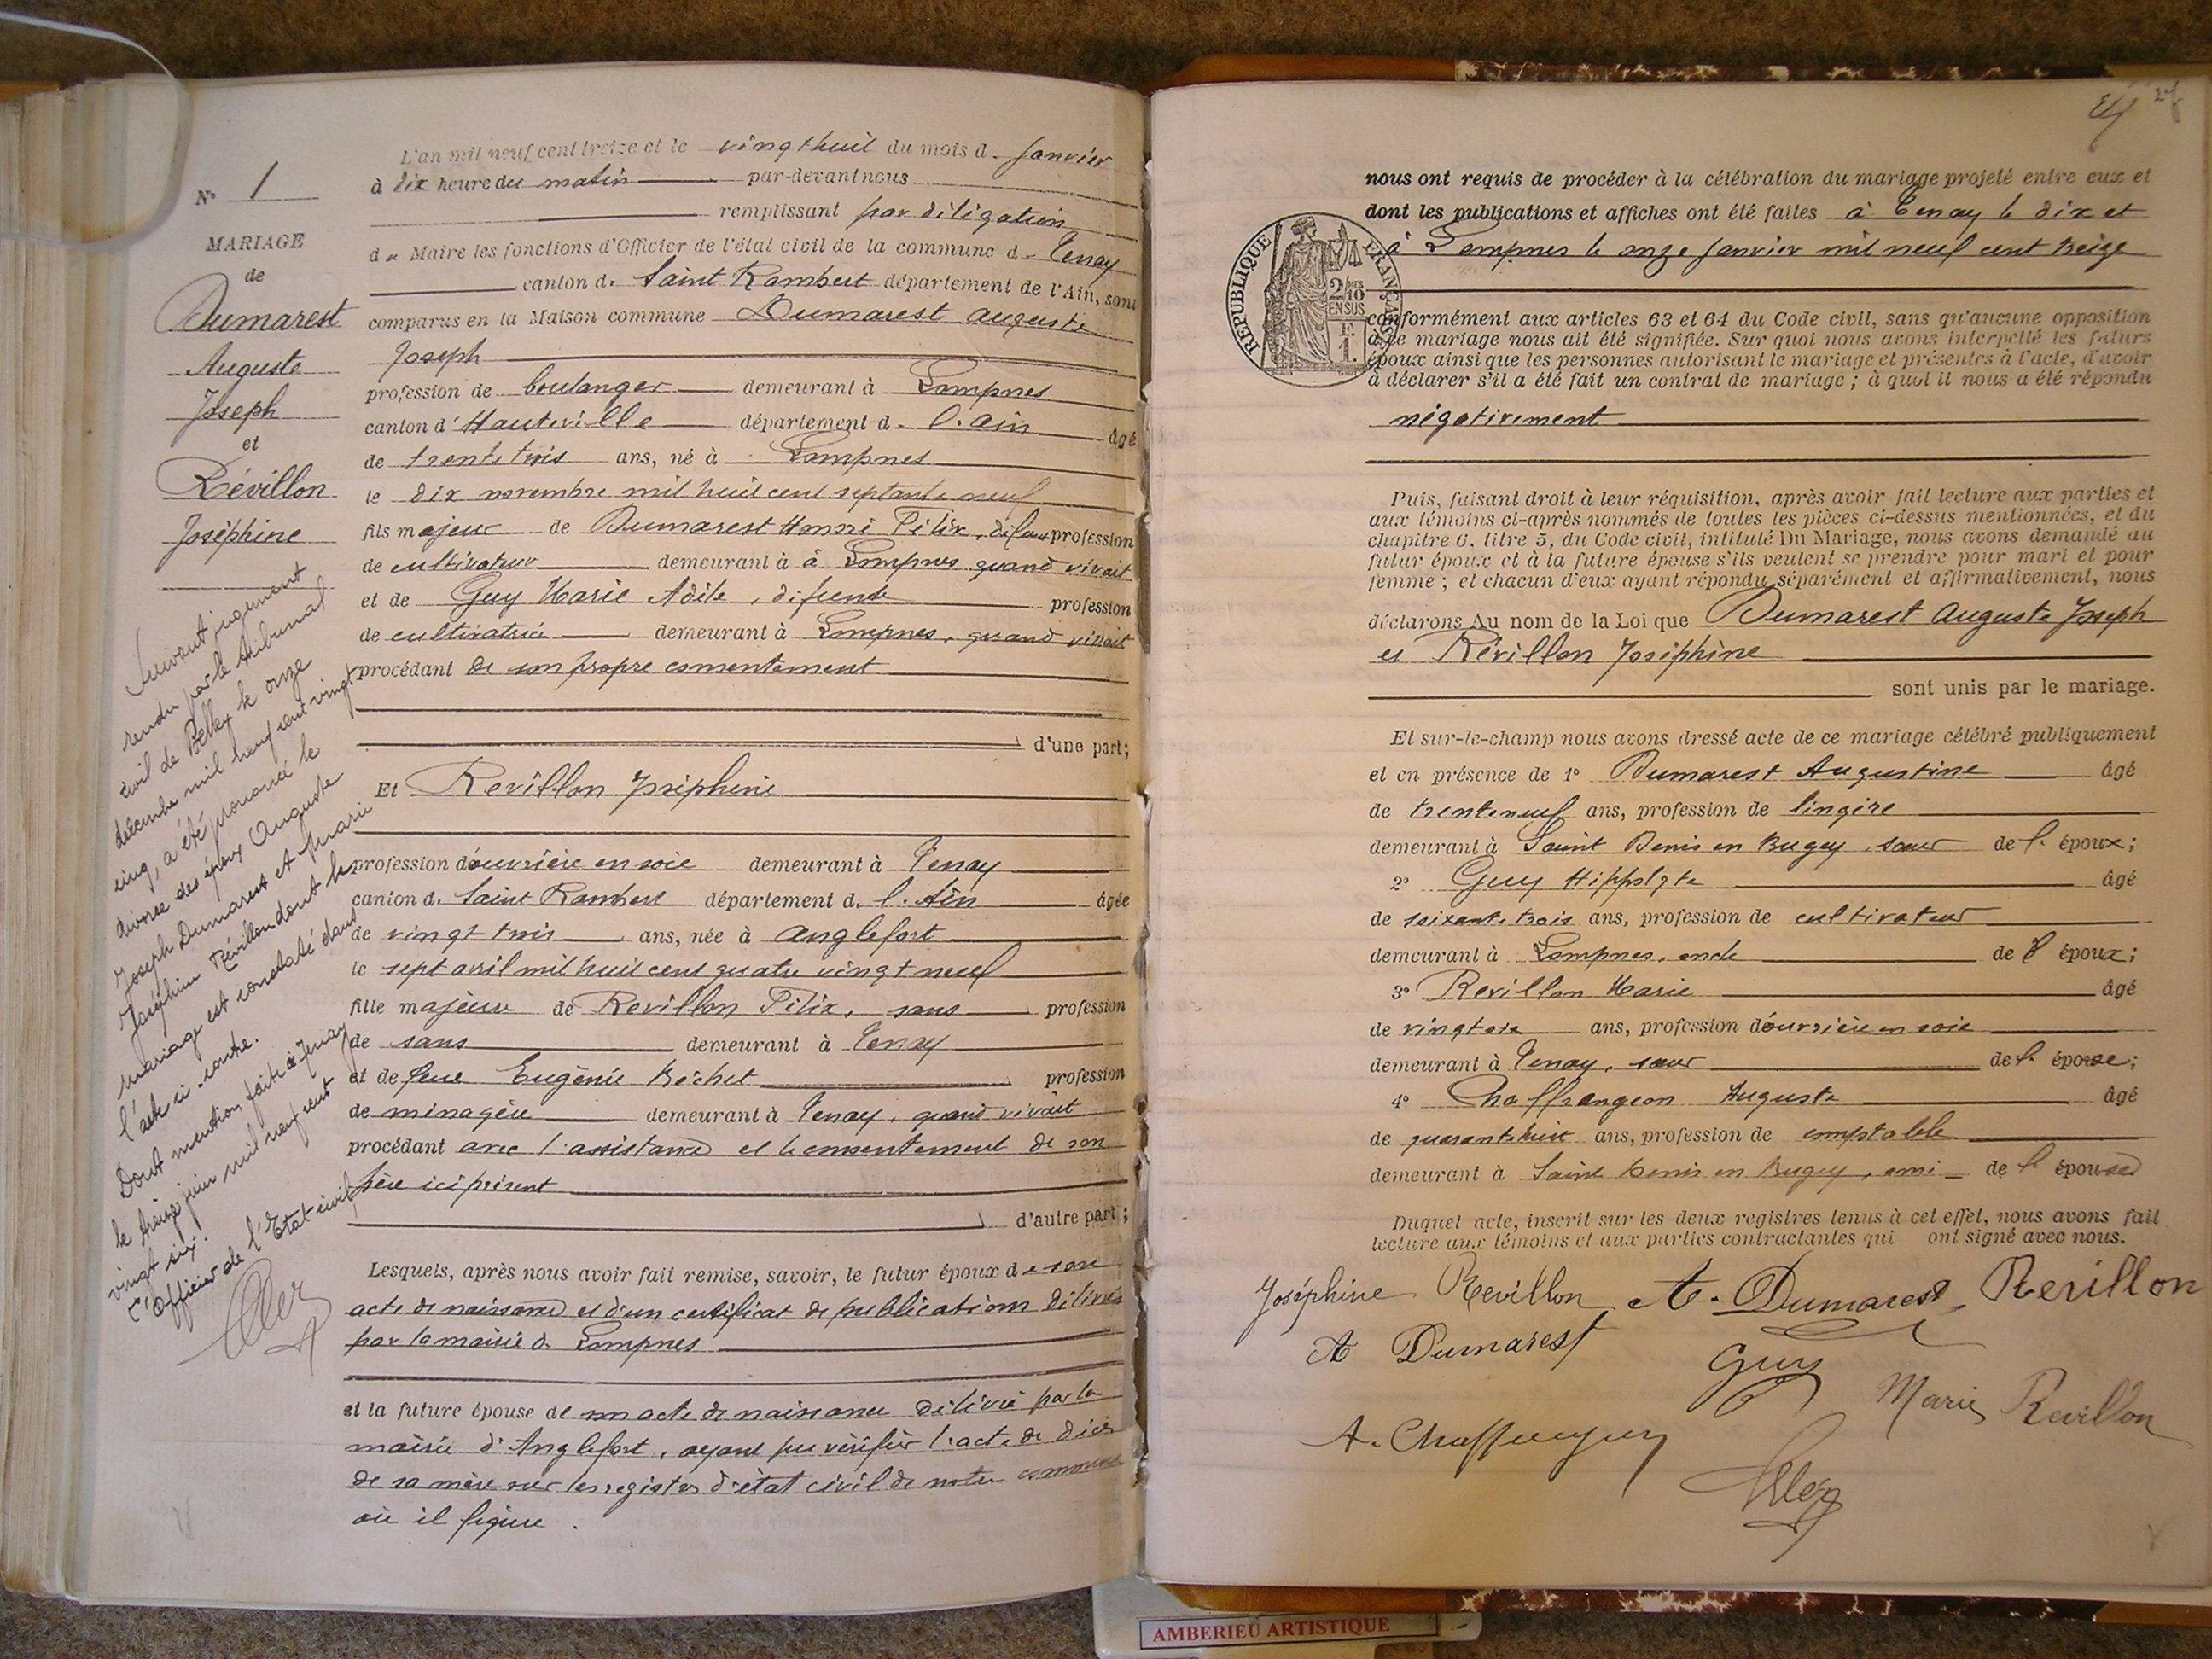 N° 1
MARIAGE
de
Dumarest
Auguste
Joseph
et
Révillon
Joséphine
Suivant jugement
rendu par le tribunal
civil de Belley le onze
décembre mil neuf cent vingt
cinq, a été prononcé le
divorce des époux Auguste
Joseph Dumarest et Marie
Joséphine Révillon dont le
mariage est constaté dans
l'acte ci-contre.
Dont mention faite à Tenay
le treize juin mil neuf cent
vingt six.
L'Officier de l'Etat civil
L'an mil neuf cent treize et le vingt huit du mois d. Janvier
à dix heure du matin par-devant nous
remplissant par déligation
du Maire les fonctions d'Officier de l'état civil de la commune d. Tenay
canton d. Saint Rambert département de l'Ain, sont
comparus en la Maison commune Dumarest auguste
Joseph
profession de boulanger demeurant à Lompnes
canton d'Hauteville département d. l'ain âgé
de trente trois ans, né à Lompnes
le dix novembre mil huit cent septante neuf
fils majeur de Dumarest Honoré Félix, défunt profession
de cultivateur demeurant à à Lompnes quand vivait
et de Guy Marie Adèle, défunte profession
de cultivatrice demeurant à Lompnes, quand vivait
procédant de son propre consentement
d'une part;
Et Revillon Joséphine
profession d'ouvrière en soie demeurant à Tenay
canton d. Saint Rambert département d. l'Ain âgée
de vingt trois ans, née à anglefort
le sept avril mil huit cent quatre vingt neuf
fille majeure de Revillon Félix, sans profession
de sans demeurant à Tenay
et de feue Eugénie Béchet profession
de ménagère demeurant à Tenay, quand vivait
procédant avec l'assistance et le consentement de son
père ici présent
d'autre part;
Lesquels, après nous avoir fait remise, savoir, le futur époux de son
acte de naissance et d'un certificat de publications délivrés
par la mairie de Lompnes
et la future épouse de son acte de naissance délivré par la
mairie d'Anglefort, ayant pu vérifier l'acte de décès
de sa mère sur les registres d'état civil de notre commune
où il figure.
nous ont requis de procéder à la célébration du mariage projeté entre eux et
dont les publications et affiches ont été faites à Tenay le dix et
à Lompnes le onze Janvier mil neuf cent treize
REPUBLIQUE FRANÇAISE
2/10 EN SUS
F. 1.
conformément aux articles 63 et 64 du Code civil, sans qu'aucune opposition
à ce mariage nous ait été signifiée. Sur quoi nous avons interpellé les futurs
époux ainsi que les personnes autorisant le mariage et présentes à l'acte, d'avoir
à déclarer s'il a été fait un contrat de mariage ; à quoi il nous a été répondu
négativement
Puis, faisant droit à leur réquisition, après avoir fait lecture aux parties et
aux témoins ci-après nommés de toutes les pièces ci-dessus mentionnées, et du
chapitre 6, titre 5, du Code civil, intitulé Du Mariage, nous avons demandé au
futur époux et à la future épouse s'ils veulent se prendre pour mari et pour
femme ; et chacun d'eux ayant répondu séparément et affirmativement, nous
déclarons Au nom de la Loi que Dumarest Auguste Joseph
et Révillon Joséphine
sont unis par le mariage.
Et sur-le-champ nous avons dressé acte de ce mariage célébré publiquement
et en présence de 1° Dumarest Augustine âgé
de trente neuf ans, profession de lingère
demeurant à Saint Denis en Bugey, sœur de l. époux;
2° Guy Hippolyte âgé
de soixante trois ans, profession de cultivateur
demeurant à Lompnes, oncle de l' époux;
3° Revillon Marie âgé
de vingt six ans, profession d'ouvrière en soie
demeurant à Tenay, sœur de l. épouse;
4° Chaffrangeon Auguste âgé
de quarante huit ans, profession de comptable
demeurant à Saint Denis en Bugey, ami de l' épouse
Duquel acte, inscrit sur les deux registres tenus à cet effet, nous avons fait
lecture aux témoins et aux parties contractantes qui ont signé avec nous.
Joséphine Revillon A. Dumarest Revillon
A Dumarest
Guy
Marie Revillon
A. Chaffrangeon
AMBERIEU ARTISTIQUE